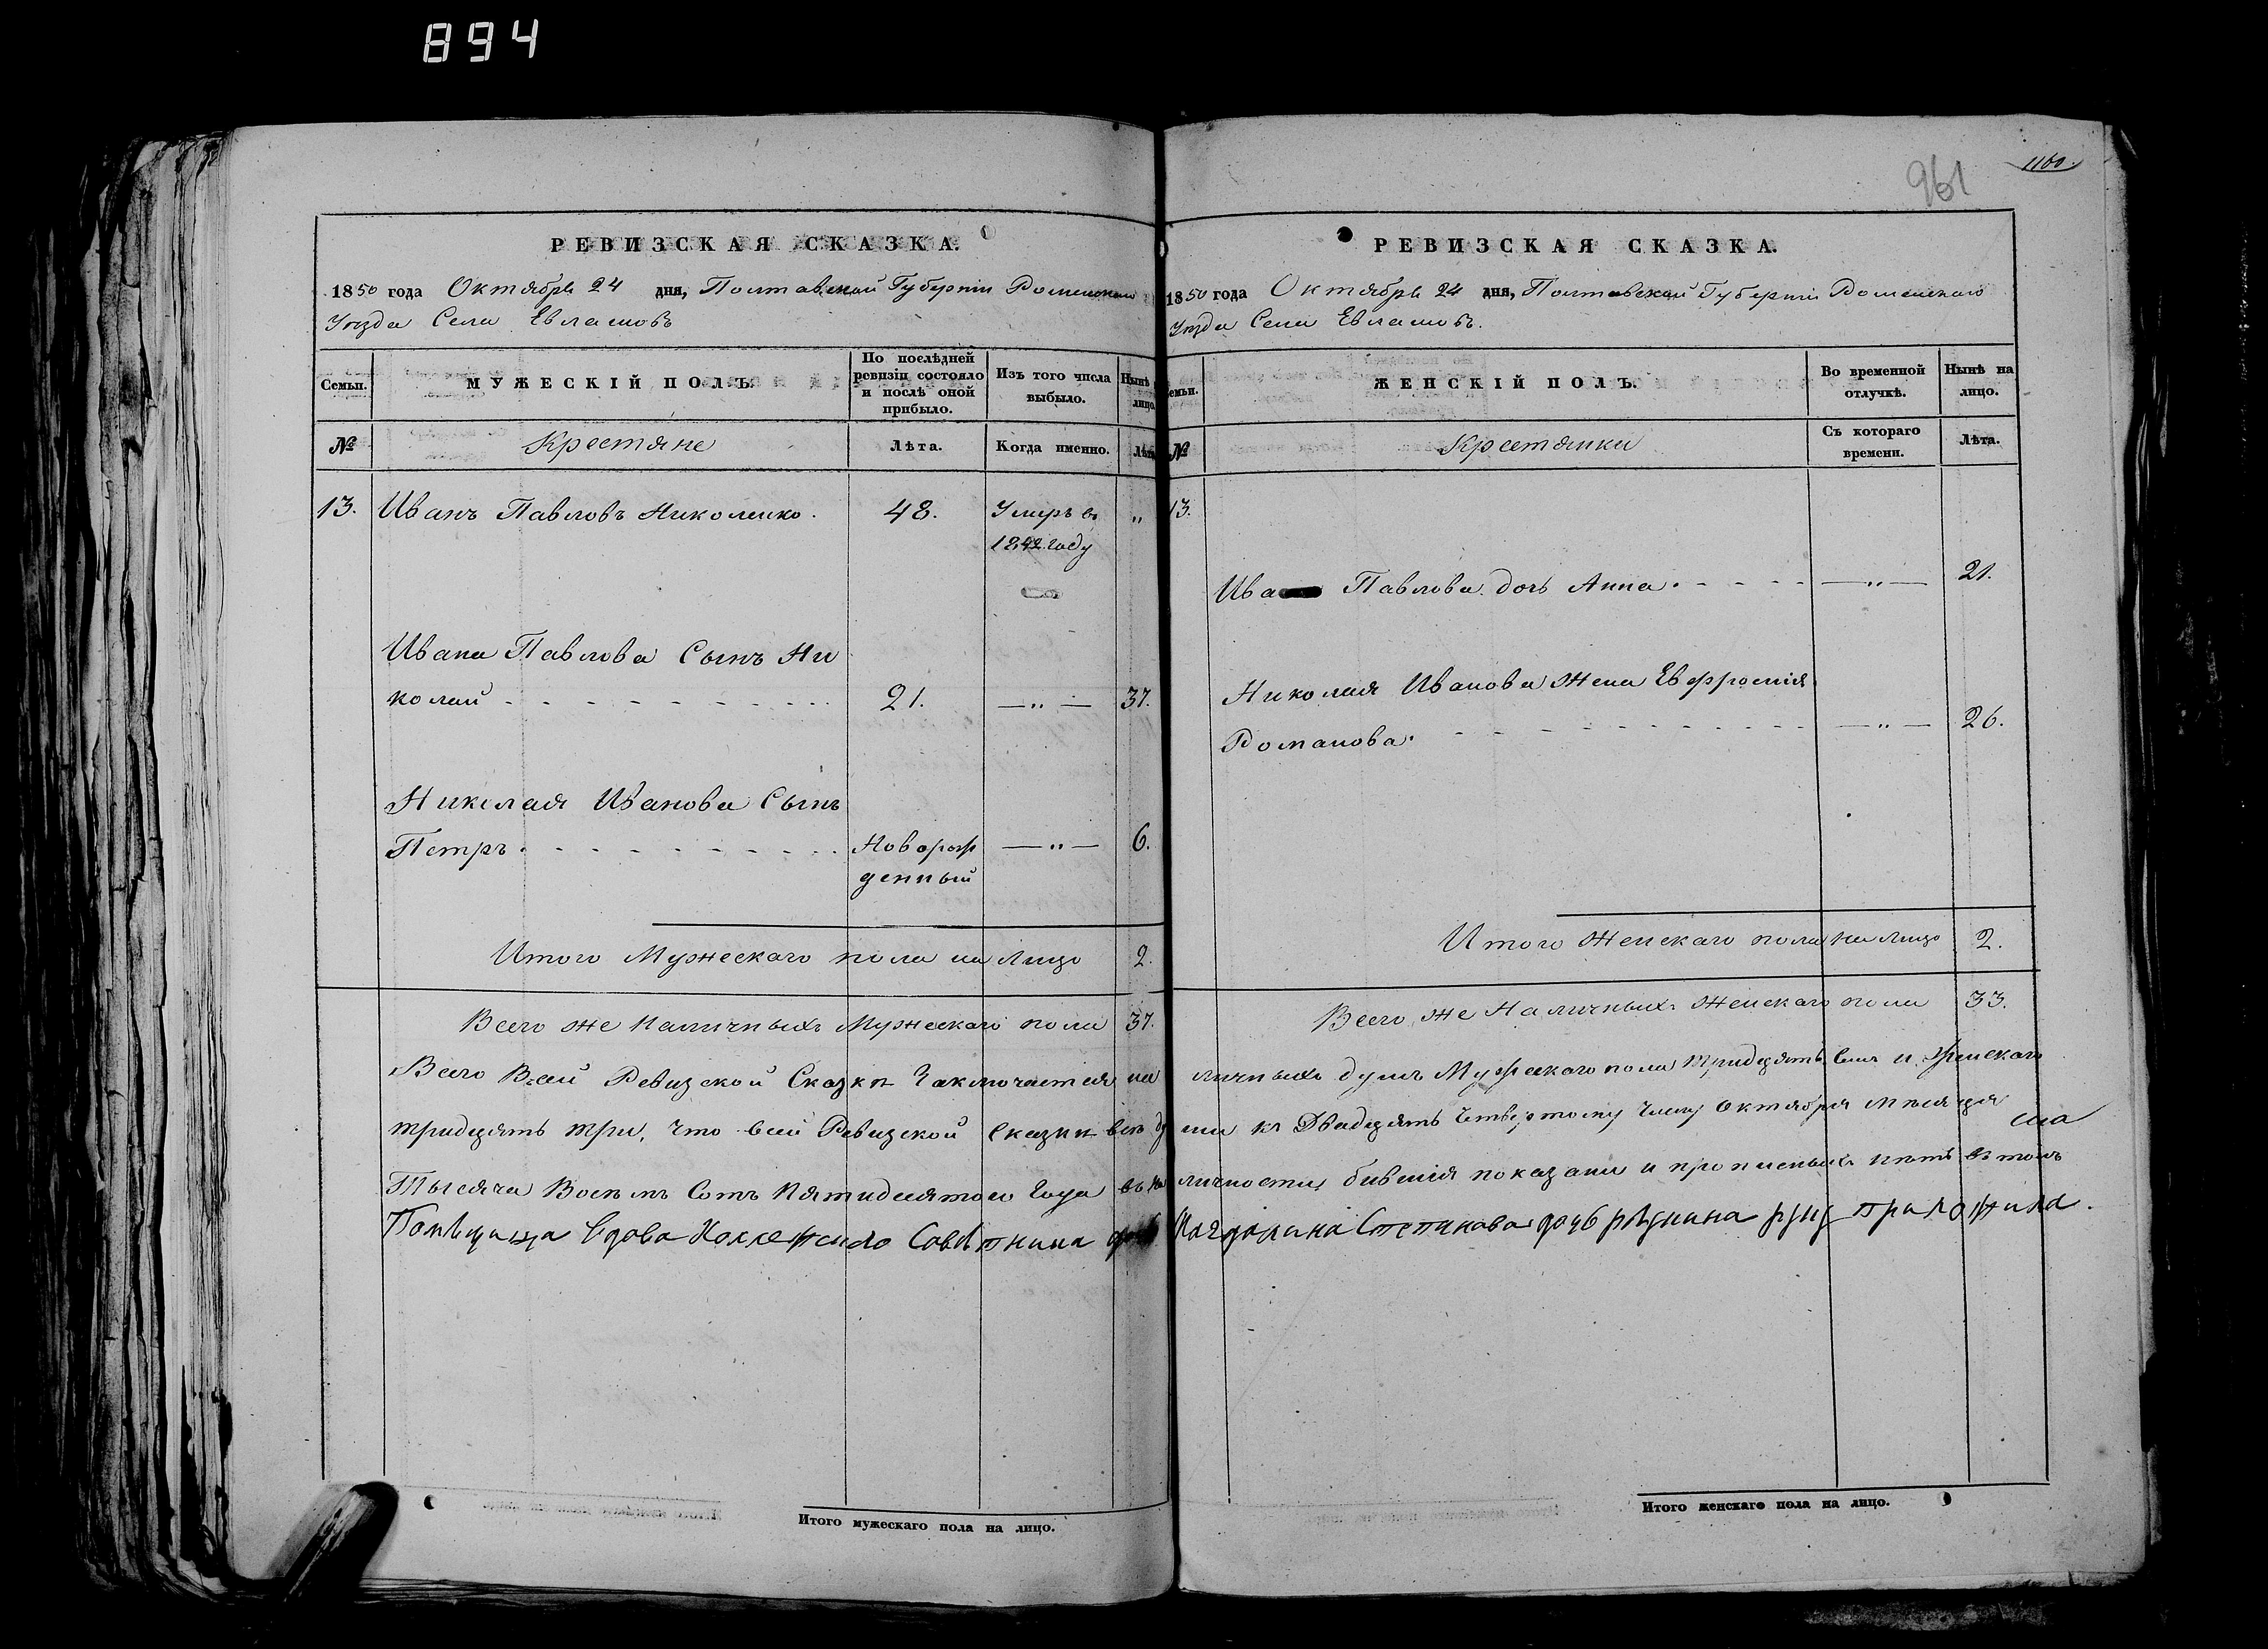 894
РЕВИЗСКАЯ СКАЗКА.
1850 года Октября 24 дня, Полтавской Губерніи Роменскаго
Уѣзда Села Евлашовъ
Семьи.
МУЖЕСКІЙ ПОЛЪ.
По послѣдней ревизіи состояло и послѣ оной прибыло.
Изъ того числа выбыло.
Нынѣ лицо.
№
Крестяне
Лѣта.
Когда именно.
Лѣта
13. Иванъ Павловъ Николенко. 48. Умеръ в „
1842 году
Ивана Павлова Сынъ Ни
колай 21. —"— 37.
Николая Иванова Сынъ
Петръ. Новорож —"— 6.
денный
Итого Мужескаго пола на лицо 2.
Всего же Наличныхъ Мужескаго пола 37.
Всего В сей Ревизской Сказки Заключается на
тридцять три, что всей Ревизской Сказки всѣ д
Тысяча Восемъ Сотъ Пятидесятого Года въ на
Помѣщица Вдова Колежского Совѣтника
Итого мужескаго пола на лицо.
961
1160.
РЕВИЗСКАЯ СКАЗКА.
1850 года Октября 24 дня, Полтавской Губерніи Роменскаго
Уѣзда Села Евлашовъ.
семьи.
ЖЕНСКІЙ ПОЛЪ.
Во временной отлучкѣ.
Нынѣ на лицо.
№
Крестянки
Съ котораго времени.
Лѣта.
13.
Ива Павлова дочь Анна. —"— 21.
Николая Иванова Жена Евфросінія
Романова. —"— 26.
Итого Женскаго пола на лицо 2.
Всего же Наличныхъ Женскаго пола 33.
личныхъ душъ Мужескаго пола тридцять семь и Женскаго
ши къ Двадцять Четвертому Числу Октября мѣсяця сна
личности бывшія показани и прописныхъ нѣтъ въ томъ
Степанова дочь руку приложила.
Итого женскаго пола на лицо.